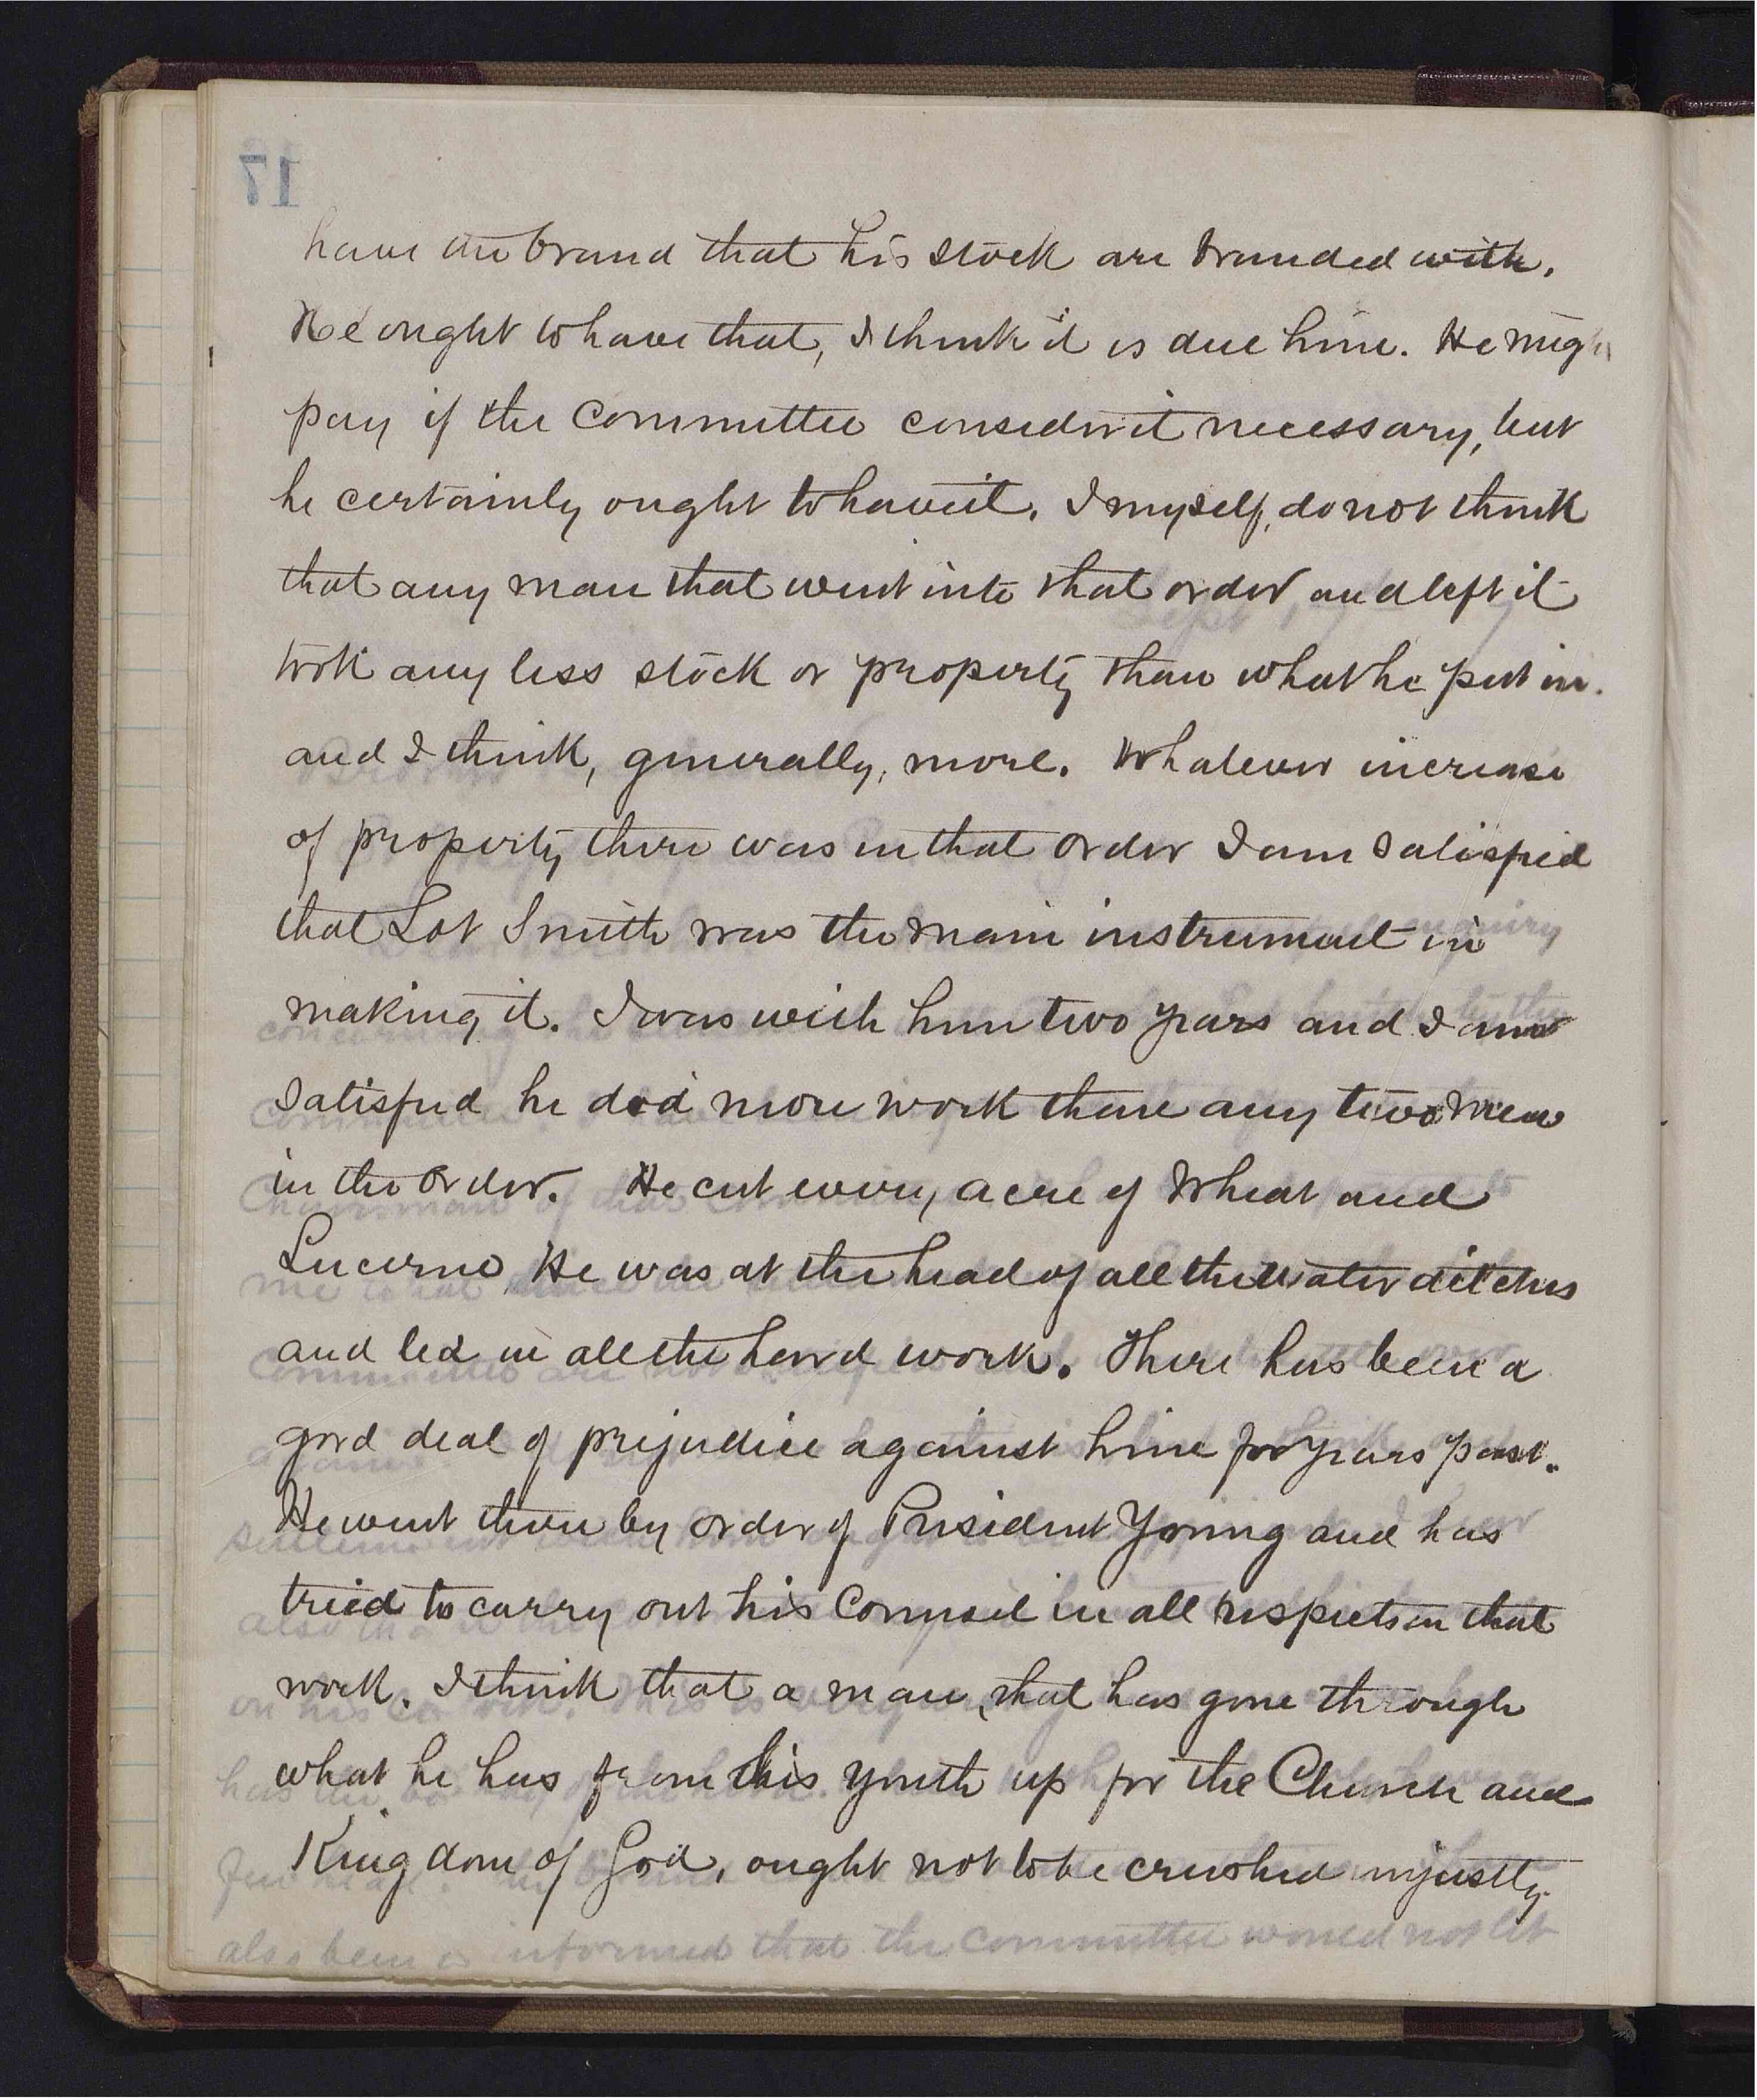 17
have the brand that his stock are branded with.
He ought to have that, I think it is due him. He migh
pay if the committee consider it necessary, but
he certainly ought to have it. I myself, do not think
that any man that went into that order and left it
took any less stock or property than what he put in.
and I think, generally, more. Whatever increase
of property there was in that order I am satisfied
that Lot Smith was the main instrument in
making it. I was with him two years and I am
satisfied he did more work than any two men
in the order. He cut every acre of Wheat and
Lucerne He was at the head of all the water ditches
and led in all the hard work. There has been a
good deal of prejudice against him for years past.
He went there by order of President Young and has
tried to carry out his Counsel in all respects in that
work. I think that a man, that has gone through
what he has from his youth up for the Church and
Kingdom of God, ought not to be crushed unjustly.
also been informed that the committee would not let